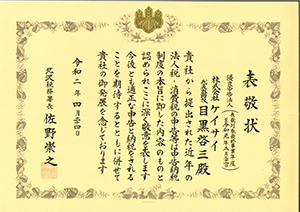 表敬状
優良申告法人
株式会社ケイサイ
代表取締役 目黒啓三殿
貴社から提出された近年の
法人税・消費税の申告等は申告納税
制度の本旨に即した内容のものと
認められここに深く敬意を表します
今後とも適正な申告と納税をされる
ことを期待するとともに併せて
貴社の御発展を念じております
令和二年四月二十四日
北沢税務署長
佐野崇之